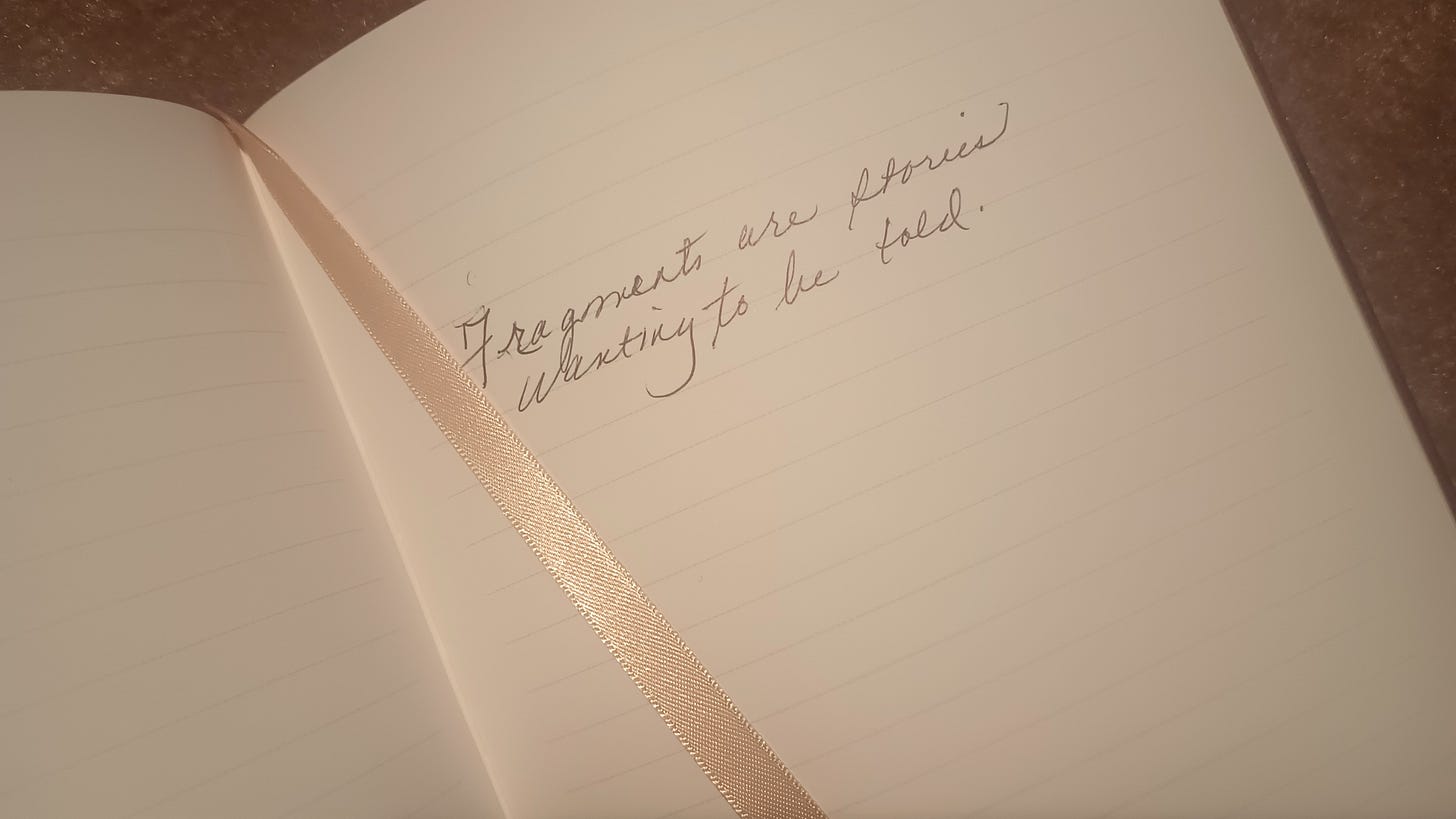 Fragments are stories
Wanting to be told.